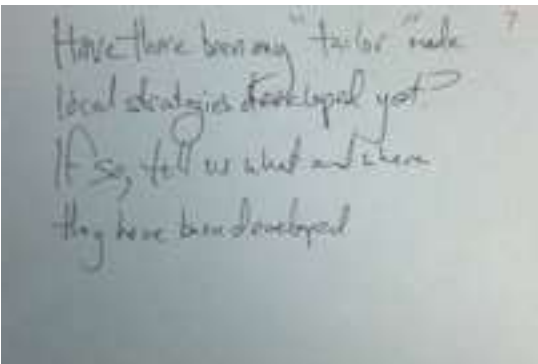 7
Have there been any "tailor" made
local strategies developed yet?
If so, tell us what and where
they have been developed